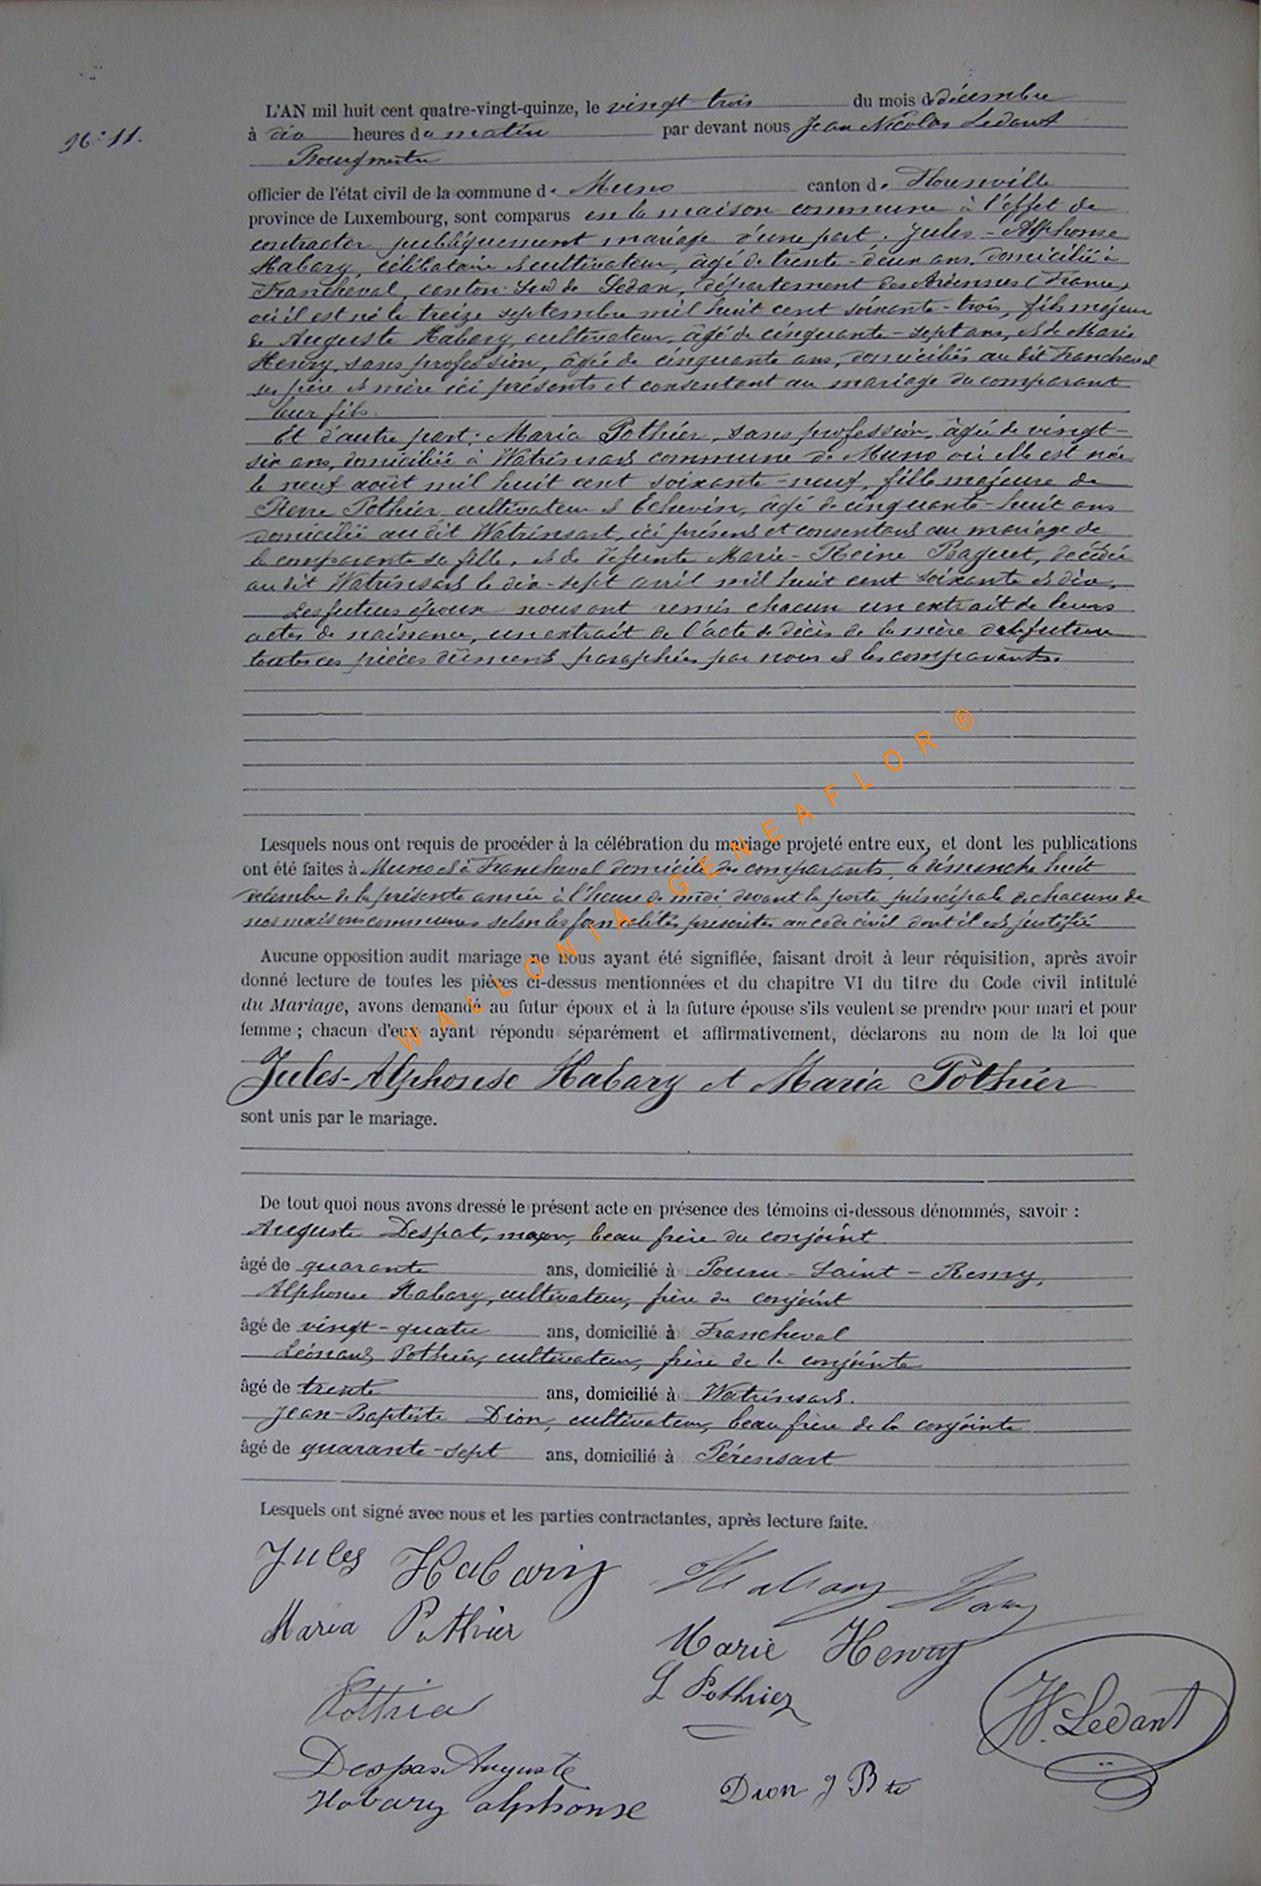 N° 11.
L'AN mil huit cent quatre-vingt-quinze, le vingt trois du mois de décembre
à dix heures du matin par devant nous Jean Nicolas Ledant
Bourgmestre
officier de l'état civil de la commune de Muno canton de Florenville
province de Luxembourg, sont comparus en la maison commune à l'effet de
contracter publiquement mariage d'une part. Jules-Alphonse
Habary, célibataire et cultivateur, âgé de trente-deux ans, domicilié à
Francheval, canton Sud de Sedan, département des Ardennes (France)
où il est né le treize septembre mil huit cent soixante-trois, fils majeur
de Auguste Habary, cultivateur, âgé de cinquante-sept ans, et de Marie
Henry, sans profession, âgée de cinquante ans, domiciliés au dit Francheval
ses père et mère ici présents et consentant au mariage du comparant
leur fils.
Et d'autre part: Maria Pothier, sans profession, âgée de vingt-
six ans, domiciliée à Watrinsart commune de Muno où elle est née
le neuf août mil huit cent soixante-neuf, fille majeure de
Pierre Pothier cultivateur et Echevin, âgé de cinquante-huit ans
domicilié au dit Watrinsart, ici présent et consentant au mariage de
la comparante sa fille, et de défunte Marie-Reine Raguet, décédée
au dit Watrinsart le dix-sept avril mil huit cent soixante et dix,
Les futurs époux nous ont remis chacun un extrait de leurs
actes de naissance, un extrait de l'acte de décès de la mère de la future
toutes ces pièces dûment paraphées par nous et les comparants.
Lesquels nous ont requis de procéder à la célébration du mariage projeté entre eux, et dont les publications
ont été faites à Muno et à Francheval domicile des comparants, le dimanche huit
décembre de la présente année à l'heure de midi devant la porte principale de chacune de
nos maisons communes selon les formalités prescrites au code civil dont il est justifié
Aucune opposition audit mariage ne nous ayant été signifiée, faisant droit à leur réquisition, après avoir
donné lecture de toutes les pièces ci-dessus mentionnées et du chapitre VI du titre du Code civil intitulé
du Mariage, avons demandé au futur époux et à la future épouse s'ils veulent se prendre pour mari et pour
femme ; chacun d'eux ayant répondu séparément et affirmativement, déclarons au nom de la loi que
Jules-Alphonse Habary et Maria Pothier
sont unis par le mariage.
De tout quoi nous avons dressé le présent acte en présence des témoins ci-dessous dénommés, savoir :
Auguste Despas, maçon, beau frère du conjoint
âgé de quarante ans, domicilié à Pouru-Saint-Remy,
Alphonse Habary, cultivateur, frère du conjoint
âgé de vingt-quatre ans, domicilié à Francheval
Léonard Pothier, cultivateur, frère de la conjointe
âgé de trente ans, domicilié à Watrinsart.
Jean-Baptiste Dion, cultivateur, beau frère de la conjointe
âgé de quarante-sept ans, domicilié à Pérensart
Lesquels ont signé avec nous et les parties contractantes, après lecture faite.
Jules Habary
Maria Pothier
Marie Henry
L Pothier
Pothier
N. Ledant
Despas Auguste
Habary alphonse
Dion J Bte
WALLONIA-GENEAFLOR®